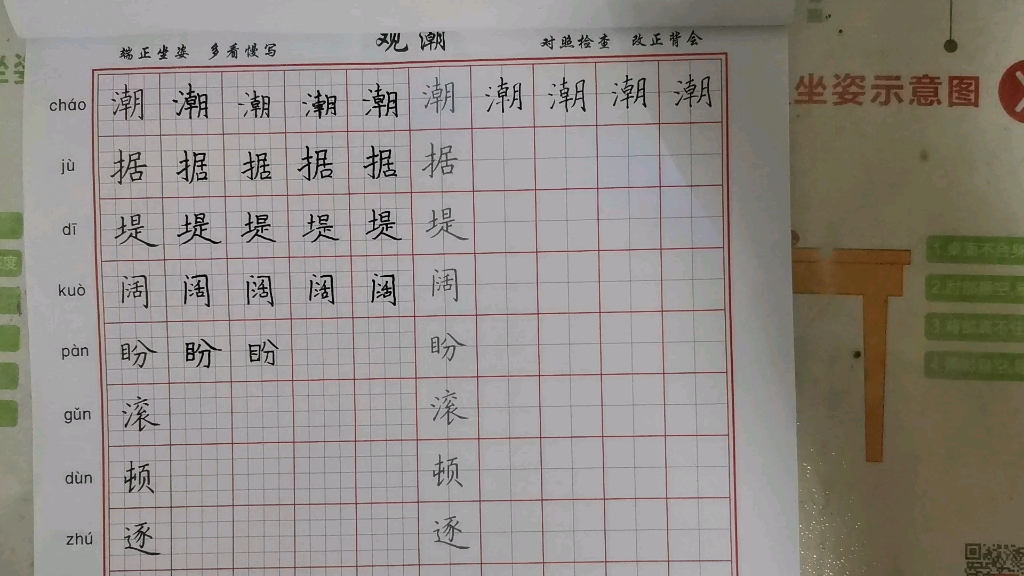 端正坐姿 多看慢写 观潮 对照检查 改正背会
坐姿示意图
cháo 潮 潮 潮 潮 潮 潮 潮 潮 潮 潮
jù 据 据 据 据 据 据
dī 堤 堤 堤 堤 堤 堤
kuò 阔 阔 阔 阔 阔 阔
pàn 盼 盼 盼 盼
gǔn 滚 滚
dùn 顿 顿
zhú 逐 逐